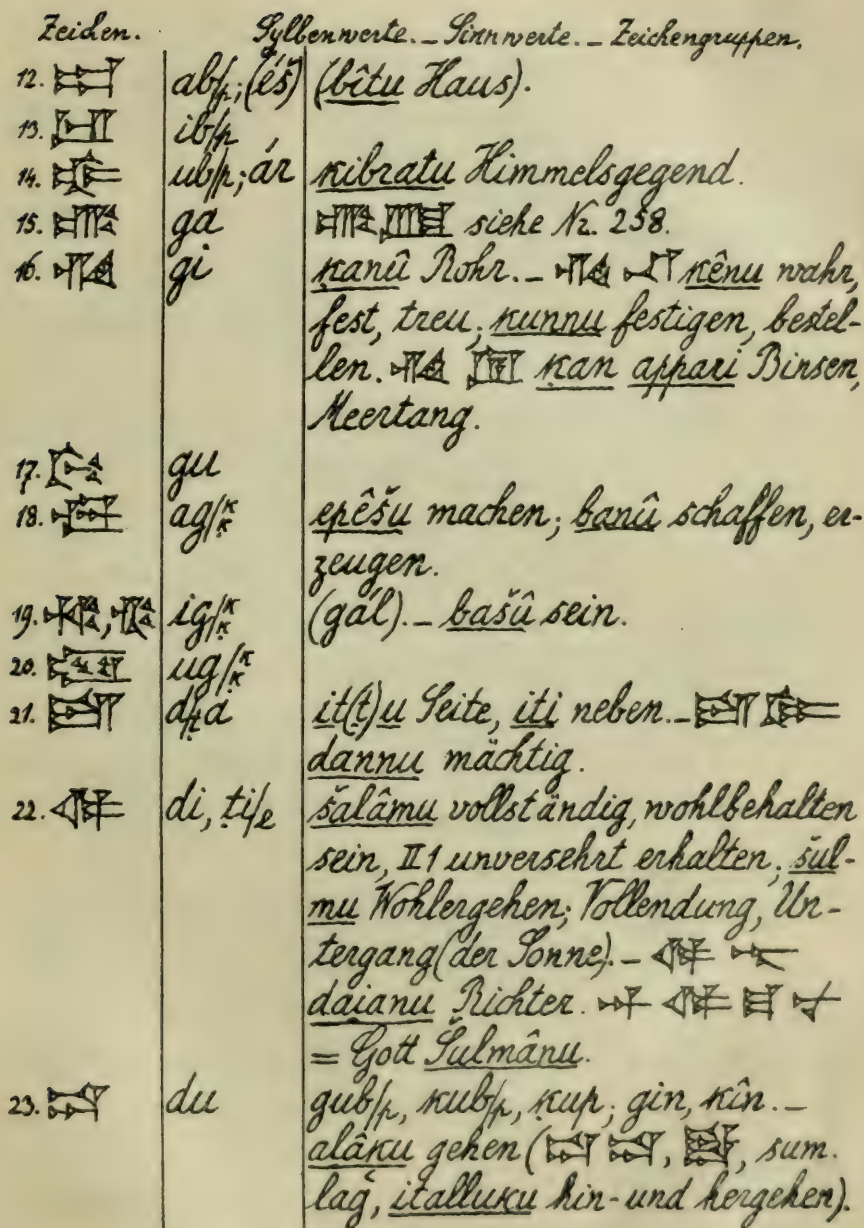 Zeichen. Sylbenwerte. _ Sinnwerte. _ Zeichengruppen.
12. 𒀊 ab/p; (éš) (bîtu Haus).
13. 𒅁 ib/p
14. 𒌒 ub/p; ár kibratu Himmelsgegend.
15. 𒂵 ga siehe Nr. 258.
16. 𒄀 gi ḳanû Rohr. _ 𒄀 𒈾 kênu wahr,
fest, treu; kunnu festigen, bestel-
len. 𒄀 ḳan appari Binsen,
Meertang.
17. 𒄖 gu
18. 𒀝 ag/k/ḳ epêšu machen; banû schaffen, er-
zeugen.
19. 𒅅 ig/k/ḳ (gál). _ bašû sein.
20. 𒊌 ug/k/ḳ
21. 𒁕 d/ṭa it(t)u Seite, iti neben. _
dannu mächtig.
22. 𒁲 di, ṭi/e šalâmu vollständig, wohlbehalten
sein, II 1 unversehrt erhalten; šul-
mu Wohlergehen; Vollendung, Un-
tergang (der Sonne). _ 𒁲
daianu Richter. 𒀭 𒁲 𒈠 𒉡
= Gott Šulmânu.
23. 𒁺 du gub/p, kub/p, ḳup; gin, kîn. _
alâku gehen (𒁺 𒁺, sum.
laġ, italluku hin- und hergehen).